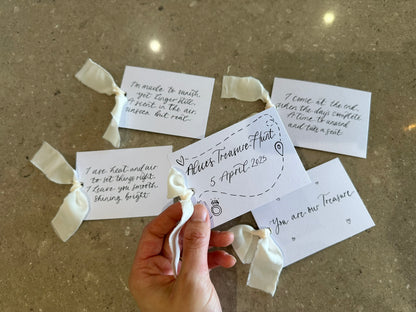 I'm made to vanish,
yet linger still.
A scent in the air,
unseen but real.
I come at the end,
when the days complete
A time to unwind
and take a seat
I use heat and air
to set things right.
I leave you smooth
shining bright
Alice's Treasure Hunt
5 April 2025
You are our Treasure